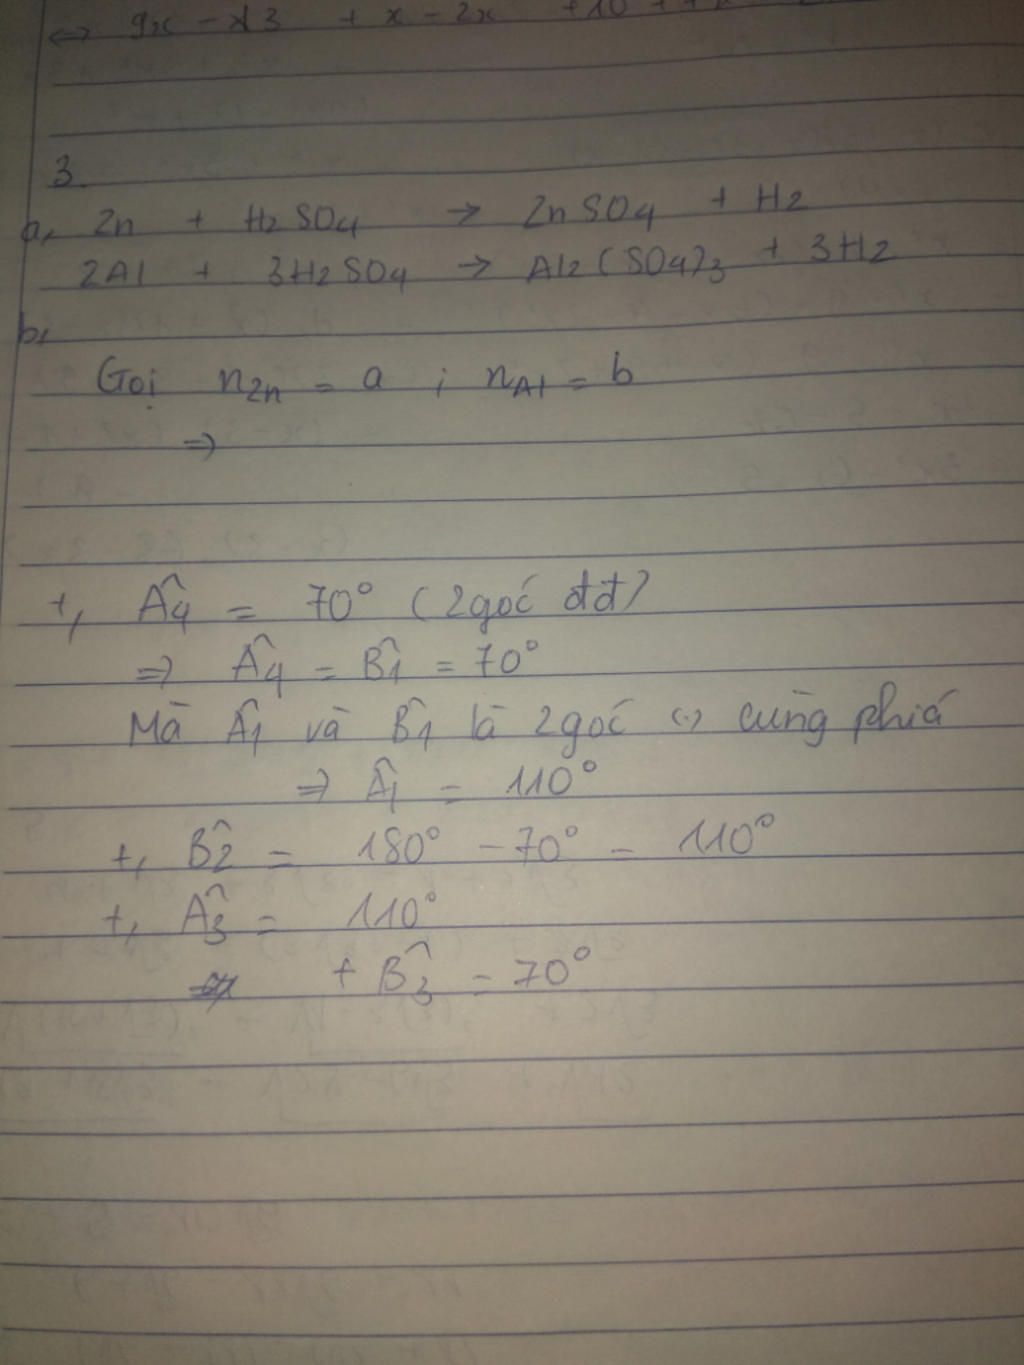 ⇔ 9x - 13 + x - 2x + 10 +
3.
a, Zn + H2SO4 → ZnSO4 + H2
2Al + 3H2SO4 → Al2(SO4)3 + 3H2
b,
Gọi nZn = a ; nAl = b
⇒
+, Â4 = 70° (2 góc đđ)
⇒ Â4 = B̂1 = 70°
Mà Â1 và B̂1 là 2 góc (..) cùng phía
⇒ Â1 = 110°
+, B̂2 = 180° - 70° = 110°
+, Â3 = 110°
+ B̂3 = 70°